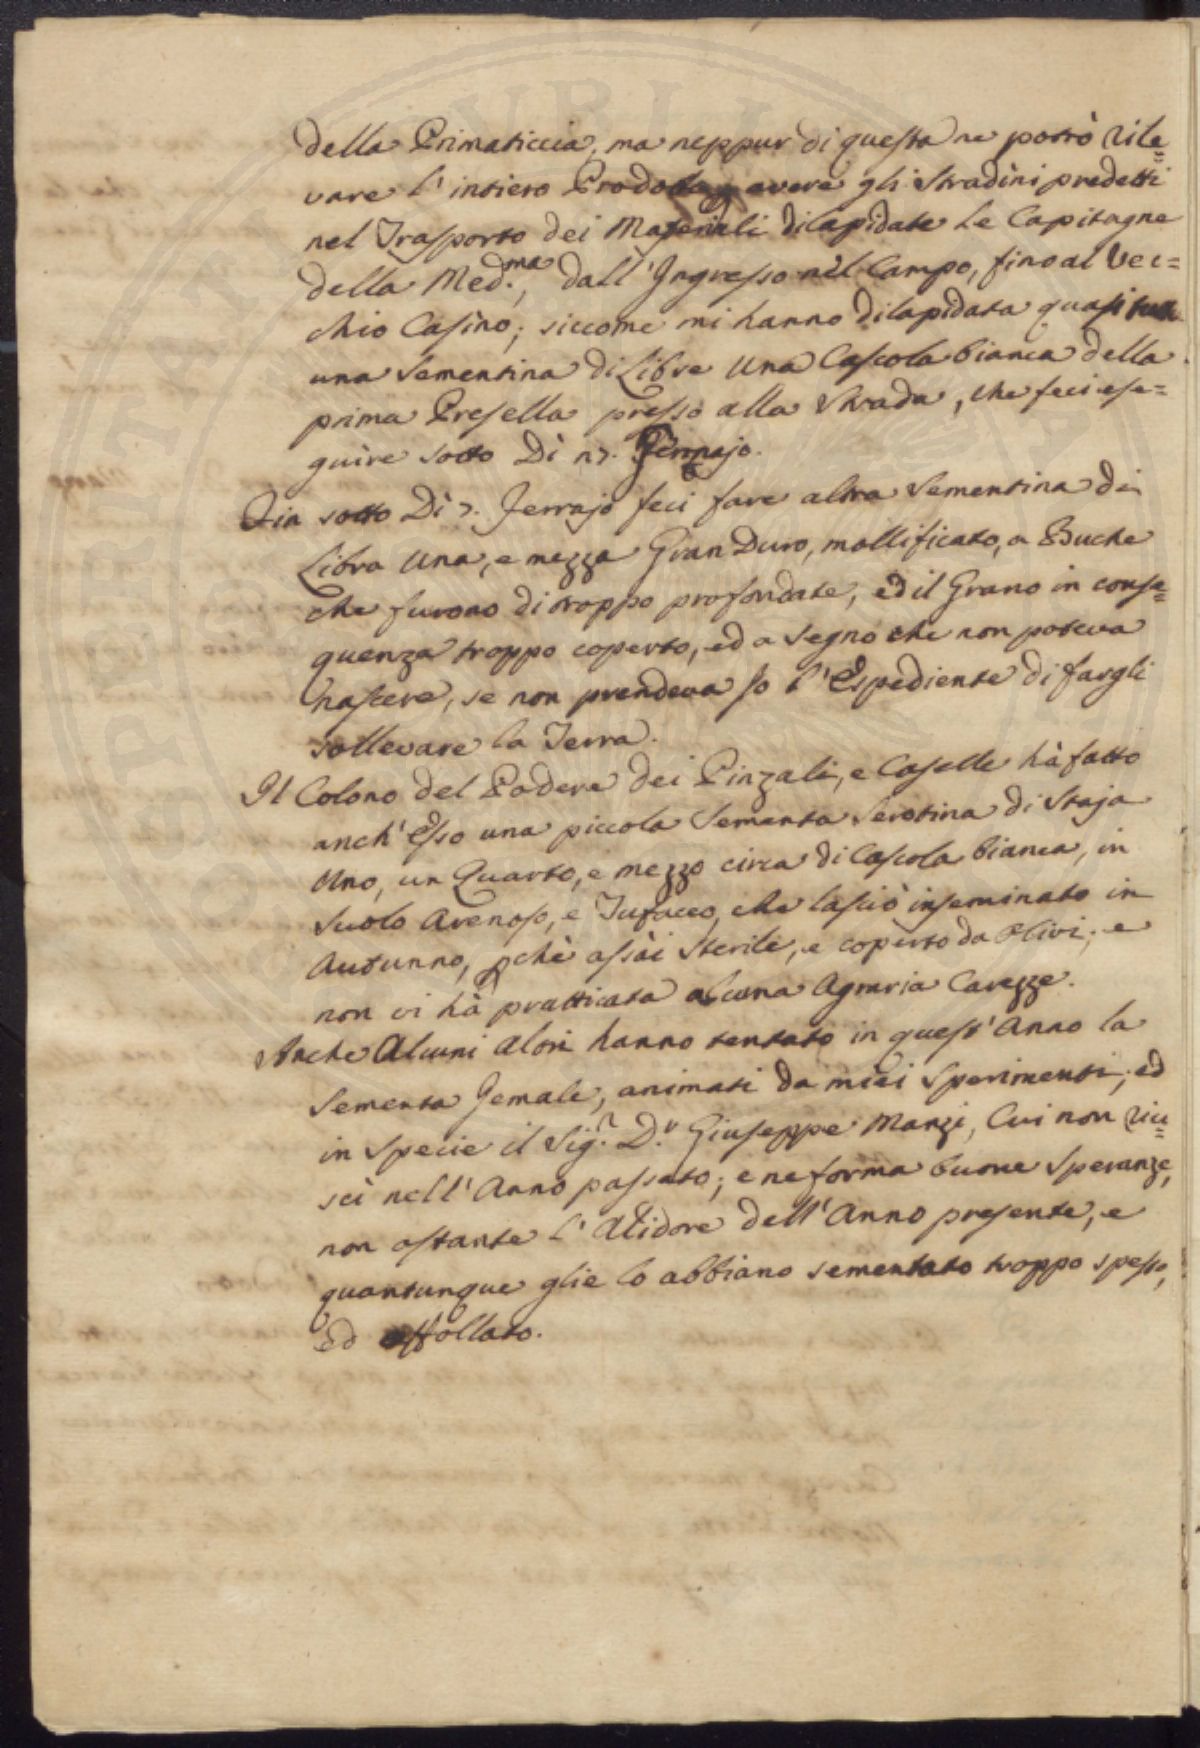 della Primaticcia, ma neppur di questa ne potrò rile=
vare l'intiero Prodotto, avere gli Stradini predetti
nel Trasporto dei Materiali dilapidate le Capitagne
della Med.ma, dall'Ingresso nel Campo, fino al Vec=
chio Casino; siccome mi hanno dilapidata quasi tutta
una Sementina di Libre Una Cascola bianca della
prima Presella presso alla Strada, che feci ese=
guire sotto Dì 17. Gennajo.
Fin sotto Dì 7. Ferrajo feci fare altra Sementina di
Libra Una, e mezza Gran Duro, mollificato, a Buche
che furono di troppo profondate, ed il Grano in conse=
quenza troppo coperto, ed a Segno che non poteva
nascere, se non prendeva Io l'Espediente di fargli
sollevare la Terra.
Il Colono del Podere dei Pinzali, e Caselle hà fatto
anch'Esso una piccola Sementa Serotina di Staja
Uno, un Quarto, e mezzo circa di Cascola bianca, in
Suolo Arenoso, e Tufaceo, che lasciò inseminato in
Autunno, pchè assai Sterile, e coperto da Olivi; e
non vi hà pratticata alcuna Agraria Carezze.
Anche Alcuni Altri hanno tentato in quest'Anno la
Sementa Jemale, animati da miei Sperimenti; ed
in Specie il Sig.r D.r Giuseppe Manzi, Cui non riu=
scì nell'Anno passato; e ne forma buone Speranze,
non ostante l'Alidore dell'Anno presente, e
quantunque glie lo abbiano sementato troppo spesso,
ed affollato.